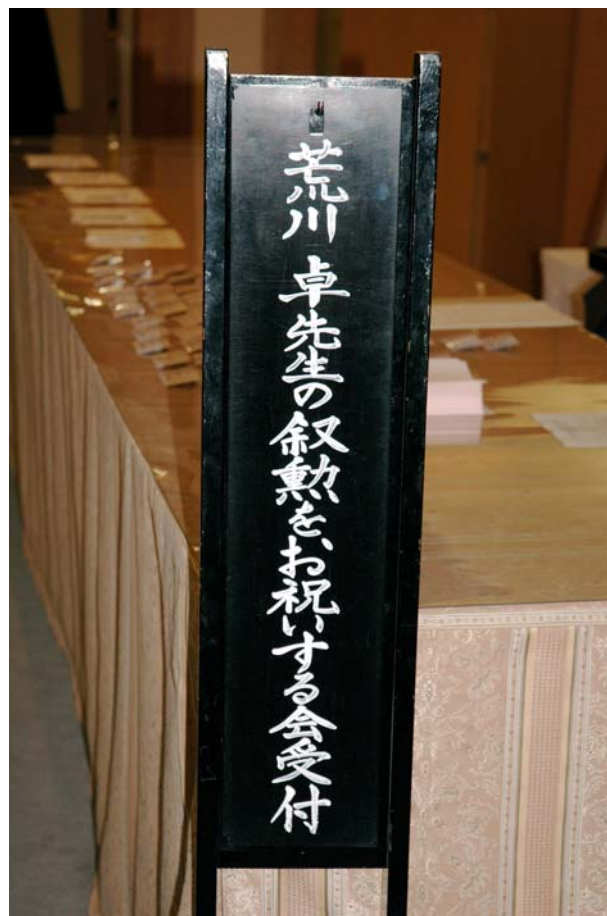 荒川 卓先生の叙勲を、お祝いする会受付